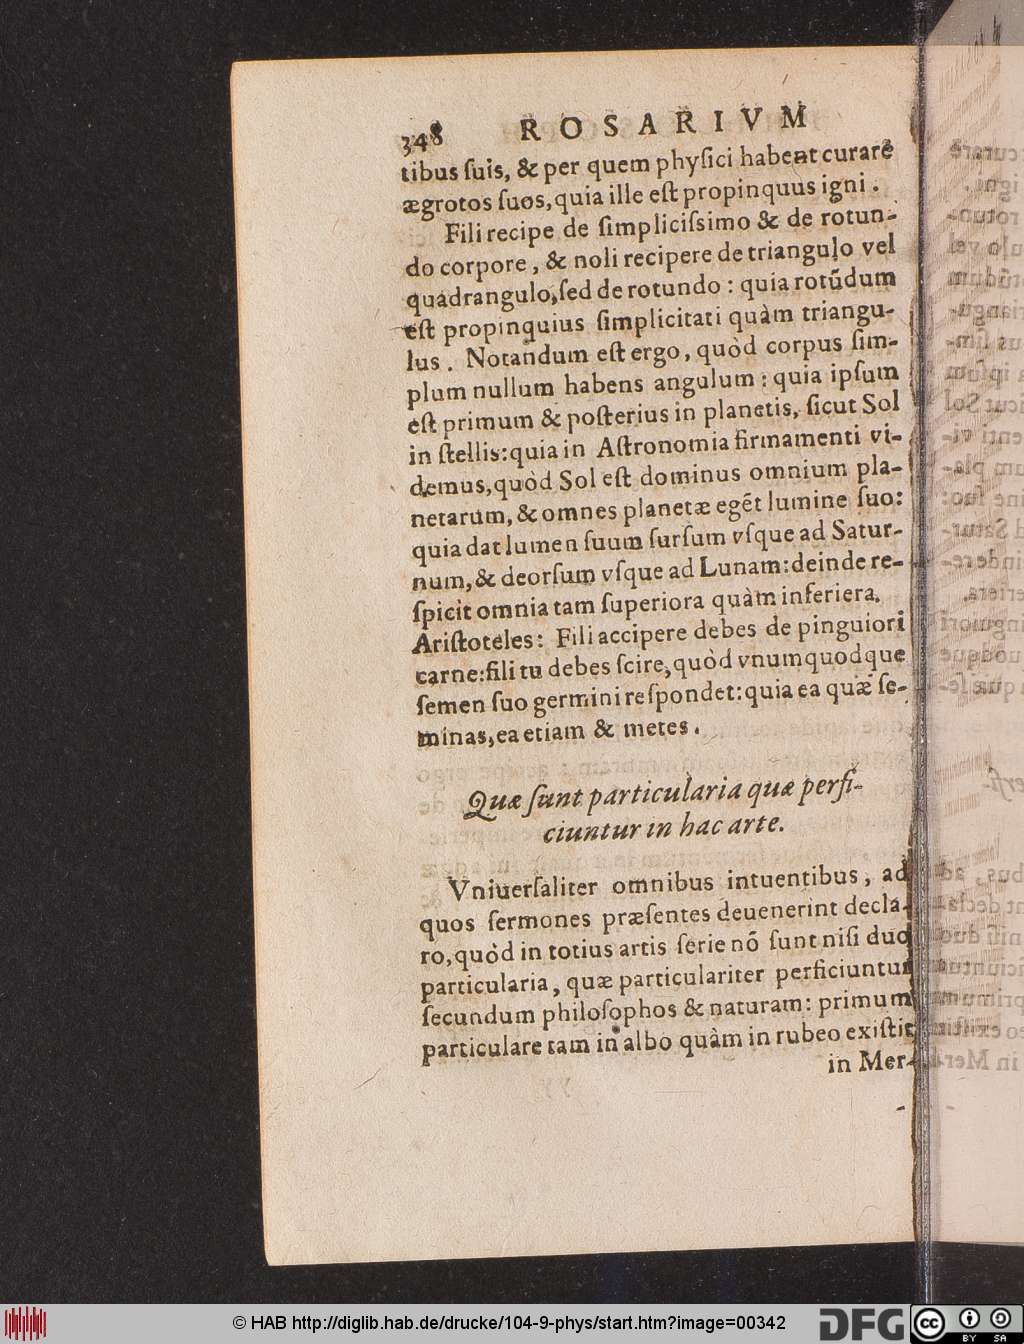 348 ROSARIVM
tibus ſuis, & per quem phyſici habent curarē
ægrotos ſuos, quia ille eſt propinquus igni.
Fili recipe de ſimpliciſsimo & de rotun-
do corpore, & noli recipere de triangulo vel
quadrangulo, ſed de rotundo: quia rotūdum
eſt propinquius ſimplicitati quàm triangu-
lus. Notandum eſt ergo, quòd corpus ſim-
plum nullum habens angulum: quia ipſum
eſt primum & poſterius in planetis, ſicut Sol
in ſtellis: quia in Aſtronomia firmamenti vi-
demus, quòd Sol eſt dominus omnium pla-
netarum, & omnes planetæ egēt lumine ſuo:
quia dat lumen ſuum ſurſum vſque ad Satur-
num, & deorſum vſque ad Lunam: deinde re-
ſpicit omnia tam ſuperiora quàm inferiera.
Ariſtoteles: Fili accipere debes de pinguiori
carne: fili tu debes ſcire, quòd vnumquodque
ſemen ſuo germini reſpondet: quia ea quæ ſe-
minas, ea etiam & metes.
Quæ ſunt particularia quæ perfi-
ciuntur in hac arte.
Vniuerſaliter omnibus intuentibus, ad
quos ſermones præſentes deuenerint decla-
ro, quòd in totius artis ſerie nō ſunt niſi duo
particularia, quæ particulariter perficiuntur
ſecundum philoſophos & naturam: primum
particulare tam in albo quàm in rubeo exiſtit
in Mer-
© HAB http://diglib.hab.de/drucke/104-9-phys/start.htm?image=00342
DFG
cc
BY SA